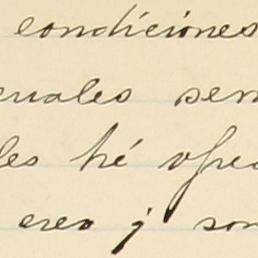 condiciones
cuales sem
les hé ofrec
creo j son